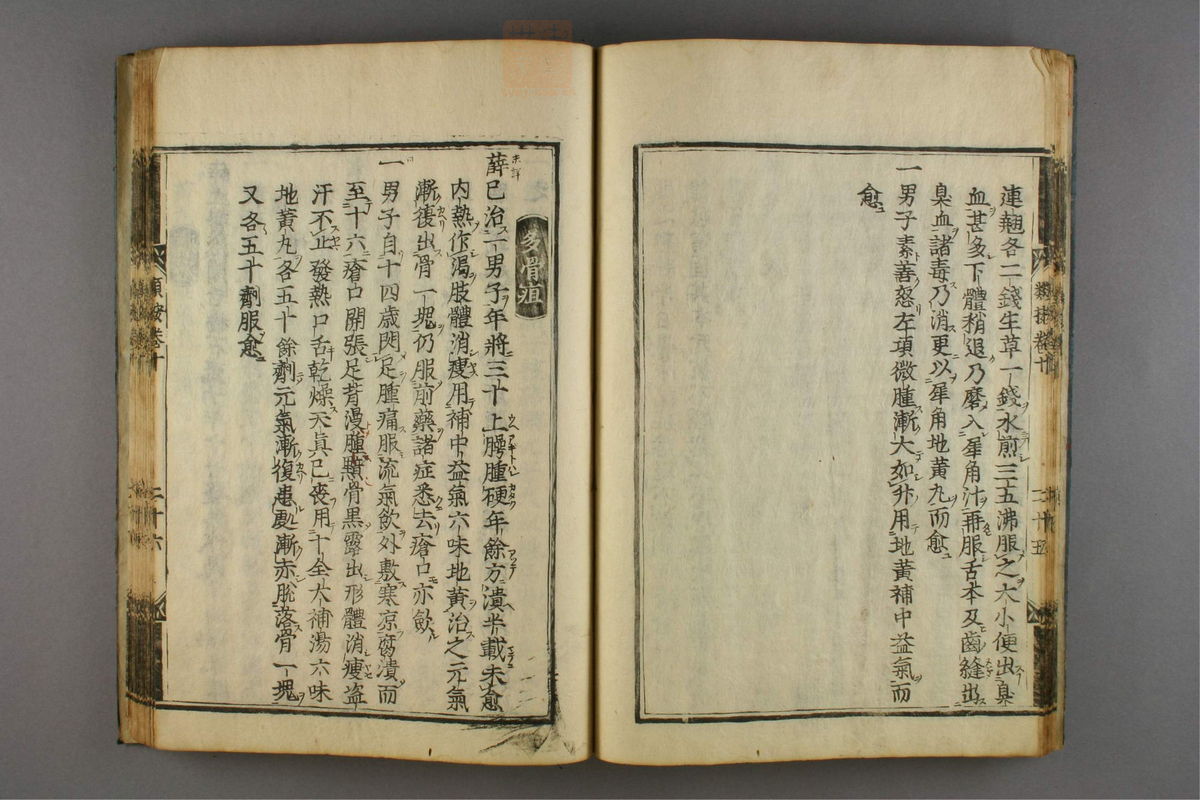 連翹各二錢生草一錢水煎三五沸服之大小便出臭
血甚多下體稍退乃磨入犀角汁再服舌本及齒縫出
臭血諸毒乃消更以犀角地黄丸而愈
一男子素善怒左項微腫漸大如升用地黄補中益氣而
愈
二十五
多骨疽
薛己治一男子年將三十上腭腫硬年餘方潰半載未愈
内熱作渴肢體消瘦用補中益氣六味地黄治之元氣
漸復出骨一塊仍服前藥諸症悉去瘡口亦歛
一男子自十四歳閃足腫痛服流氣飲外敷寒凉腐潰而
至十六瘡口開張足背漫腫黯骨黒露出形體消痩盗
汗不止發熱口舌乾燥天真已喪用十全大補湯六味
地黄丸各五十餘劑元氣漸復患處漸赤脱落骨一塊
又各五十劑服愈
類按卷十
二十六